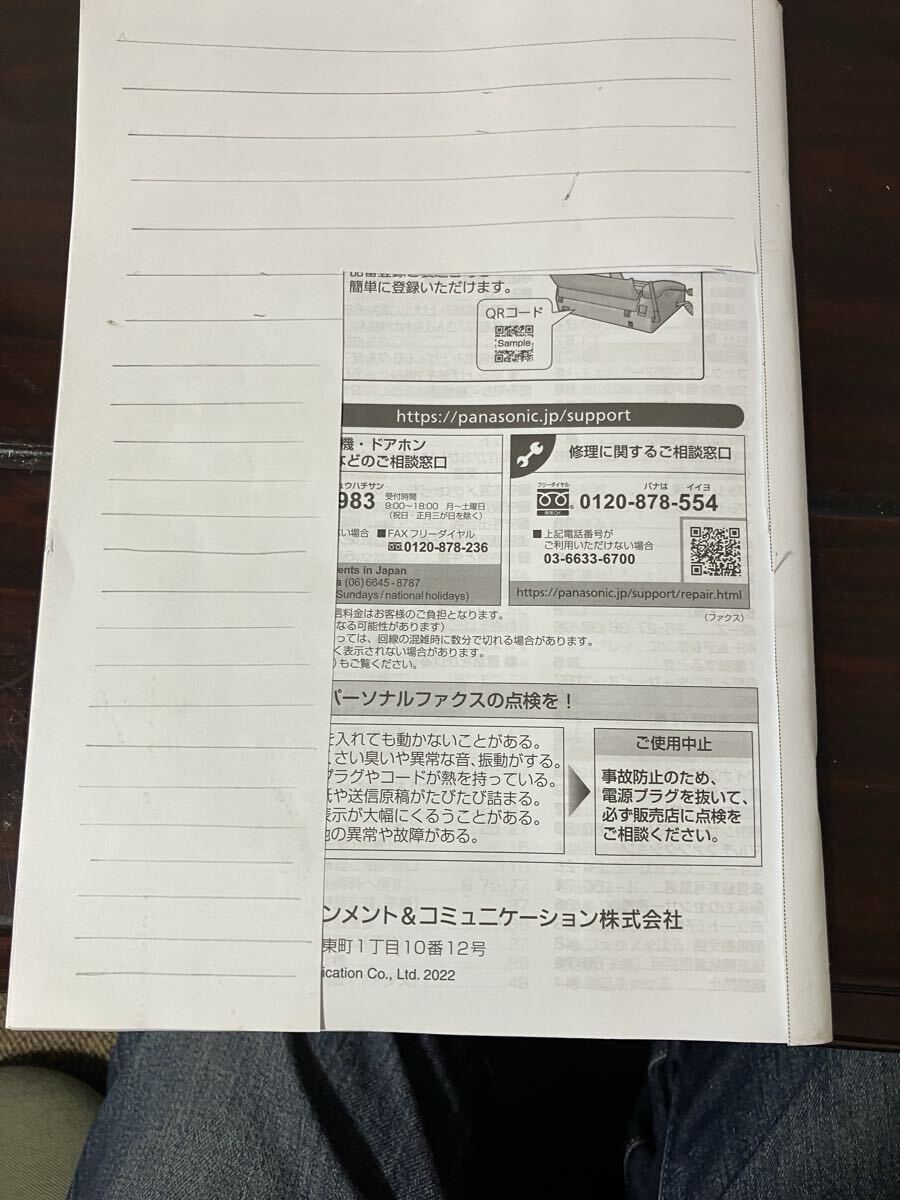 簡単に登録いただけます。
QRコード
Sample
https://panasonic.jp/support
機・ドアホン
などのご相談窓口
ュウハチサン
983
受付時間
9:00～18:00 月～土曜日
（祝日・正月三が日を除く）
ない場合 ■FAXフリーダイヤル
0120-878-236
ents in Japan
a (06)6645-8787
Sundays/national holidays)
修理に関するご相談窓口
フリーダイヤル
パナは イイヨ
0120-878-554
■上記電話番号が
ご利用いただけない場合
03-6633-6700
https://panasonic.jp/support/repair.html
（ファクス）
信料金はお客様のご負担となります。
なる可能性があります）
っては、回線の混雑時に数分で切れる場合があります。
く表示されない場合があります。
）もご覧ください。
パーソナルファクスの点検を！
を入れても動かないことがある。
くさい臭いや異常な音、振動がする。
プラグやコードが熱を持っている。
紙や送信原稿がたびたび詰まる。
表示が大幅にくるうことがある。
他の異常や故障がある。
ご使用中止
事故防止のため、
電源プラグを抜いて、
必ず販売店に点検を
ご相談ください。
ンメント＆コミュニケーション株式会社
東町1丁目10番12号
ication Co., Ltd. 2022